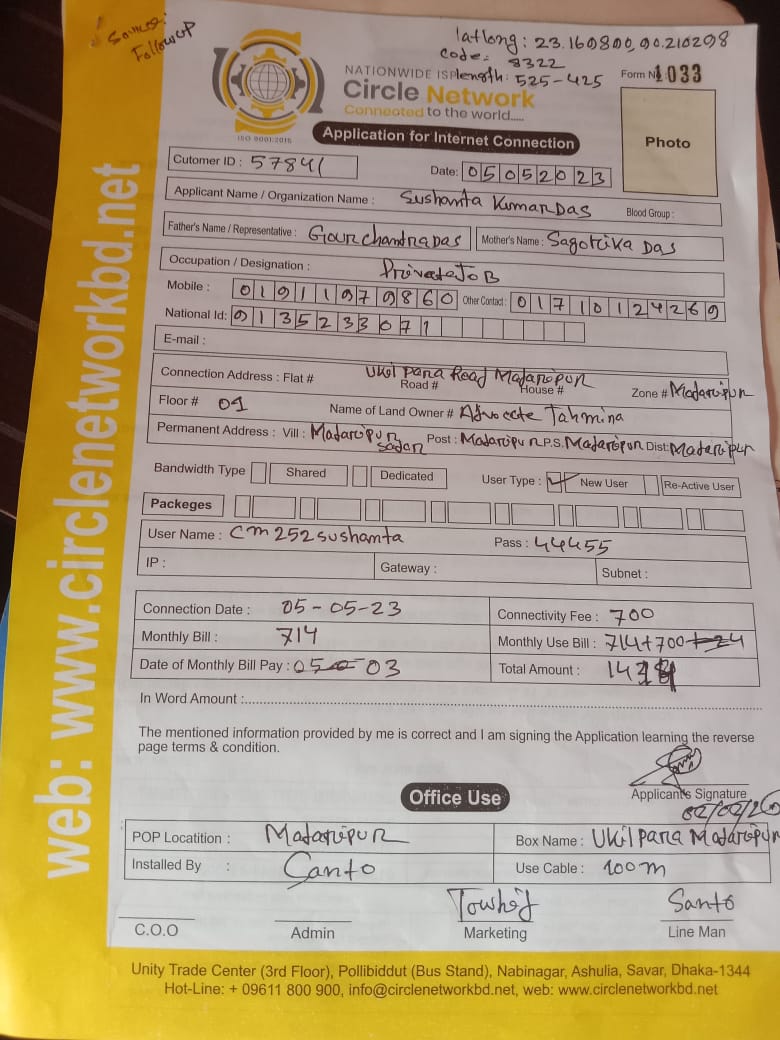 Source:
Followup
latlong: 23.160800,90.210298
code: 8322
length: 525-425
NATIONWIDE ISP
Form No 1033
Circle Network
Connected to the world.....
ISO 9001:2015
Application for Internet Connection
Photo
Cutomer ID : 57841
Date: 05052023
Applicant Name / Organization Name : Sushanta Kumar Das Blood Group :
Father's Name / Representative : Gour chandra Das Mother's Name : Sagorika Das
Occupation / Designation : Private JoB
Mobile : 01911979860 Other Contact : 01710124269
National Id: 0135233071
E-mail :
Connection Address : Flat # Ukil Para Road Madaripur Road # House # Zone # Madaripur
Floor # 01 Name of Land Owner # Advocete Tahmina
Permanent Address : Vill : Madaripur Sadar Post : Madaripur P.S. Madaripur Dist: Madaripur
Bandwidth Type Shared Dedicated User Type : New User Re-Active User
Packeges
User Name : cm252sushamta Pass : 44455
IP : Gateway : Subnet :
Connection Date : 05-05-23 Connectivity Fee : 700
Monthly Bill : 714 Monthly Use Bill : 714+700
Date of Monthly Bill Pay : 05 03 Total Amount :
In Word Amount :
The mentioned information provided by me is correct and I am signing the Application learning the reverse
page terms & condition.
Applicant's Signature
Office Use
POP Locatition : Madaripur Box Name : Ukil Para Madaripur
Installed By : Santo Use Cable : 100m
Towhid Santo
C.O.O Admin Marketing Line Man
Unity Trade Center (3rd Floor), Pollibiddut (Bus Stand), Nabinagar, Ashulia, Savar, Dhaka-1344
Hot-Line: + 09611 800 900, info@circlenetworkbd.net, web: www.circlenetworkbd.net
web: www.circlenetworkbd.net